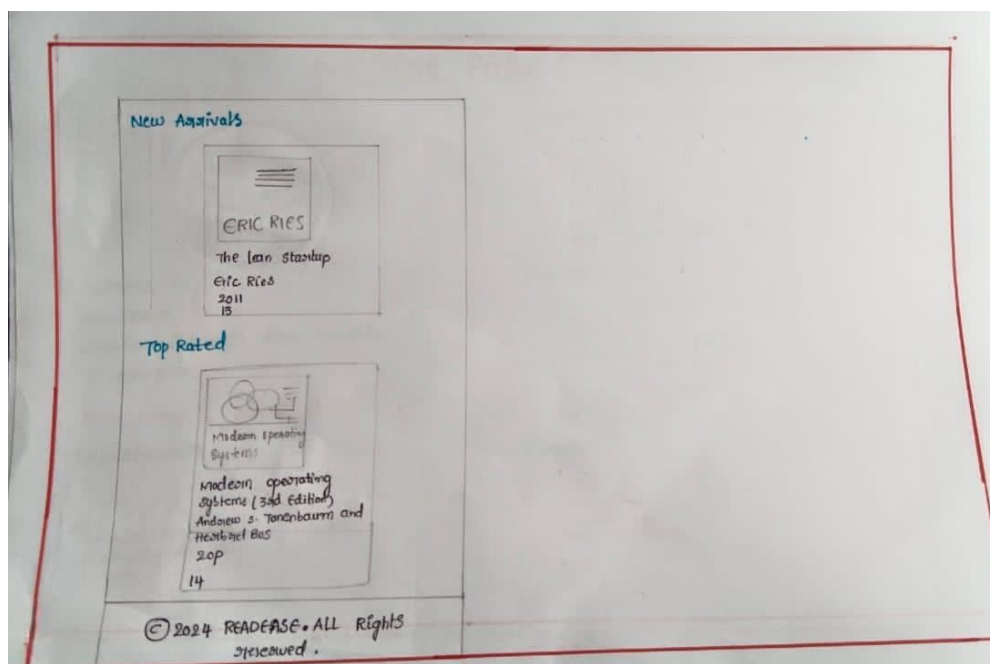 New Arrivals
ERIC RIES
The lean startup
Eric Ries
2011
15
Top Rated
Modern operating
Systems
Modern operating
systems (3rd Edition)
Andrew S. Tanenbaum and
Herbert Bos
20p
14
© 2024 READEASE. ALL Rights
reserved.